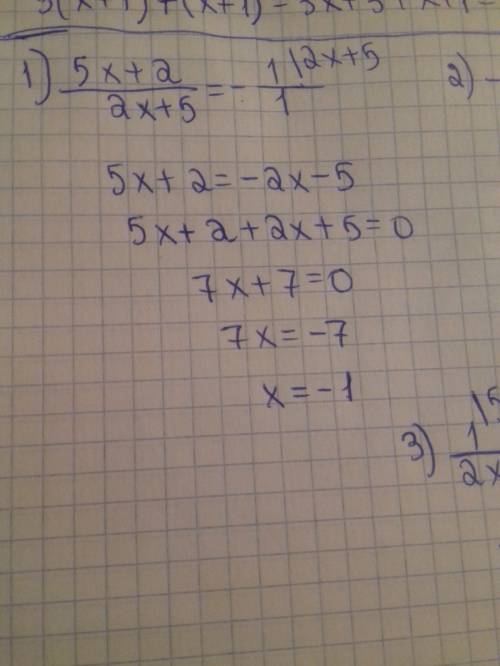 1) (5x+2)/(2x+5) = - 1/1 \2x+5
2) -
5x+2=-2x-5
5x+2+2x+5=0
7x+7=0
7x=-7
x=-1
3) 1/2x \5